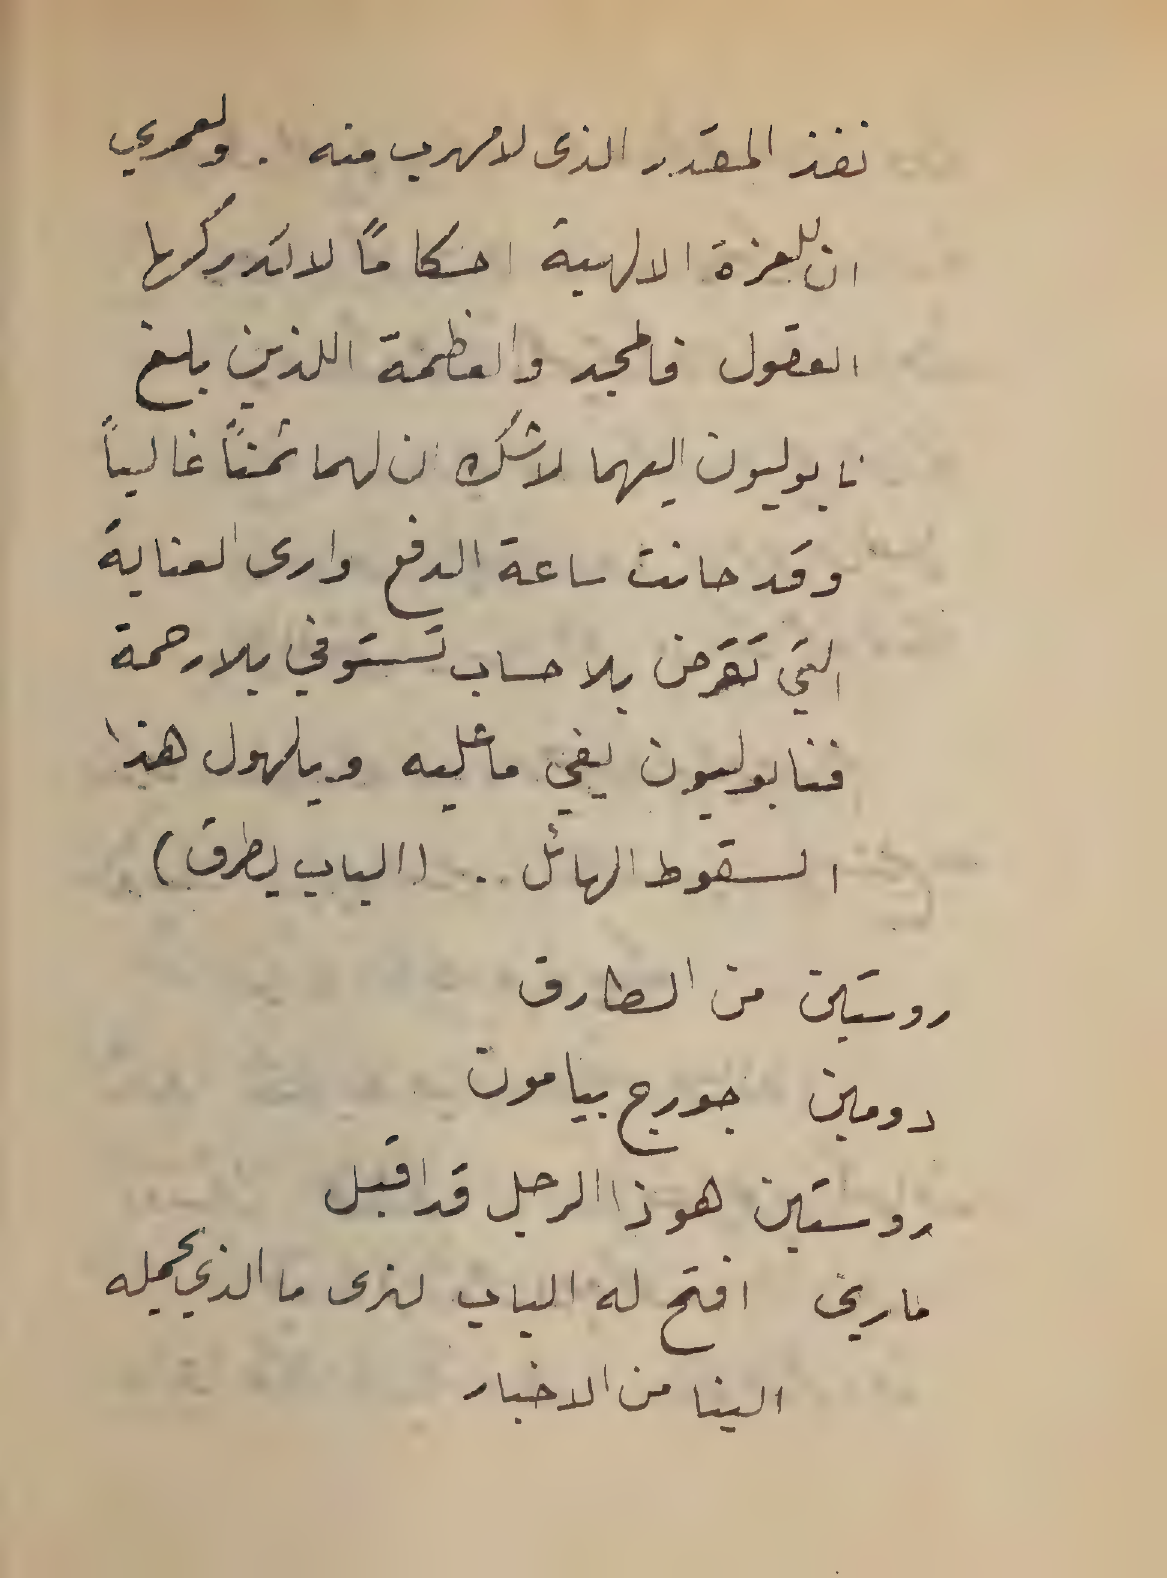 نفذ المقدر الذى لا مهرب منه . ولعمري
ان للعزة الالهية احكاماً لا تدركها
العقول فالمجد والعظمة اللذين بلغ
نابوليون اليهما لا شك ان لهما ثمناً غالياً
وقد حانت ساعة الدفع وارى العناية
التي تقرض بلا حساب تستوفي بلا رحمة
فنابوليون يفي ما عليه ويالهول هذا
السقوط الهائل .. (الباب يطرق)
روستين من الطارق
دومين جورج بيامون
روستين هوذا الرجل قد اقبل
ماريى افتح له الباب لنرى ما الذي يحمله
الينا من الاخبار